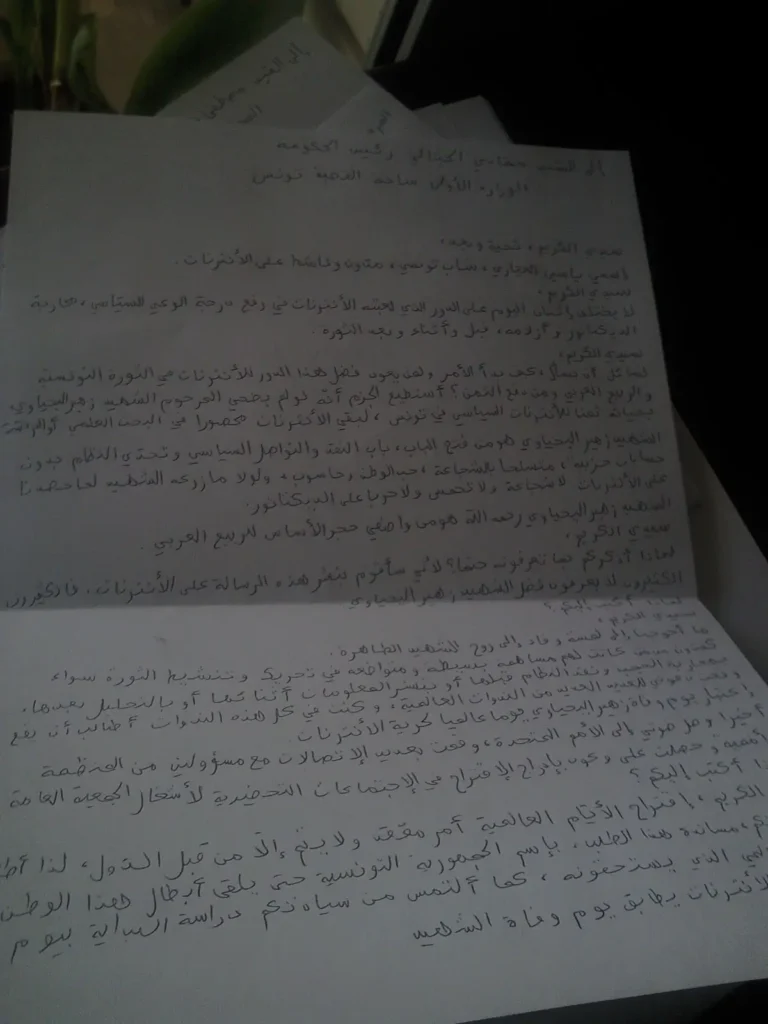 إلى السيد
إلى السيد حمادي الجبالي رئيس الحكومة
الوزارة الأولى ساحة القصبة تونس
سيدي الكريم، تحية وبعد،
إسمي ياسين العياري، شاب تونسي، مدون وناشط على الأنترنات.
سيدي الكريم،
لا يختلف إثنان اليوم على الدور الذي لعبته الأنترنات في رفع درجة الوعي السياسي، محاربة
الديكتاتور وأزلامه، قبل وأثناء وبعد الثورة.
سيدي الكريم،
لسائل أن يسأل، كيف بدأ الأمر ولمن يعود فضل هذا الدور للأنترنات في الثورة التونسية
والربيع العربي ومن دفع الثمن؟ أستطيع الجزم أنه لو لم يضحي المرحوم الشهيد زهير اليحياوي
بحياته ثمنا للأنترنات السياسي في تونس، لبقي الأنترنات محصورا في البحث العلمي أو
الشهيد زهير اليحياوي هو من فتح الباب، باب النقد والتواصل السياسي وتحدي النظام بدون
حسابات حزبية، متسلحا بالشجاعة، حب الوطن وحاسوب، ولولا ما زرعه الشهيد لما حصدنا
على الأنترنات لا شجاعة ولا تحمس ولا حربا على الديكتاتور.
الشهيد زهير اليحياوي رحمه الله هو من واضعي حجر الأساس للربيع العربي.
سيدي الكريم،
لماذا أذكركم بما تعرفونه حتما؟ لأني سأقوم بنشر هذه الرسالة على الأنترنات، فالكثيرون
الكثيرون لا يعرفون فضل الشهيد زهير اليحياوي
لماذا أكتب إليكم؟
سيدي الكريم،
ما أحوجنا إلى لمسة وفاء إلى روح الشهيد الطاهرة.
كمدون ممن كانت لهم مساهمة بسيطة ومتواضعة في تحريك وتنشيط الثورة سواء
بمحاربة الحجب ونقد النظام قبلها أو بنشر المعلومات أثنائها أو بالتحليل بعدها،
وقعت دعوتي للعديد العديد من الندوات العالمية، وكنت في كل هذه الندوات أطالب أن يقع
إعتبار يوم وفاة زهير اليحياوي يوما عالميا لحرية الأنترنات
أخيرا وصل صوتي إلى الأمم المتحدة، وقمت بعديد الإتصالات مع مسؤولين من المنظمة
الأممية وحصلت على وعود بإدراج الإقتراح في الإجتماعات التحضيرية لأشغال الجمعية العامة
لماذا أكتب إليكم؟
الكريم، إقتراح الأيام العالمية أمر معقد ولا يتم إلا من قبل الدول، لذا
مساندة هذا الطلب، بإسم الجمهورية التونسية حتى يلقى أبطال هذا الوطن
الذي يستحقونه، كما ألتمس من سيادتكم دراسة البداية بيوم
للأنترنات يطابق يوم وفاة الشهيد